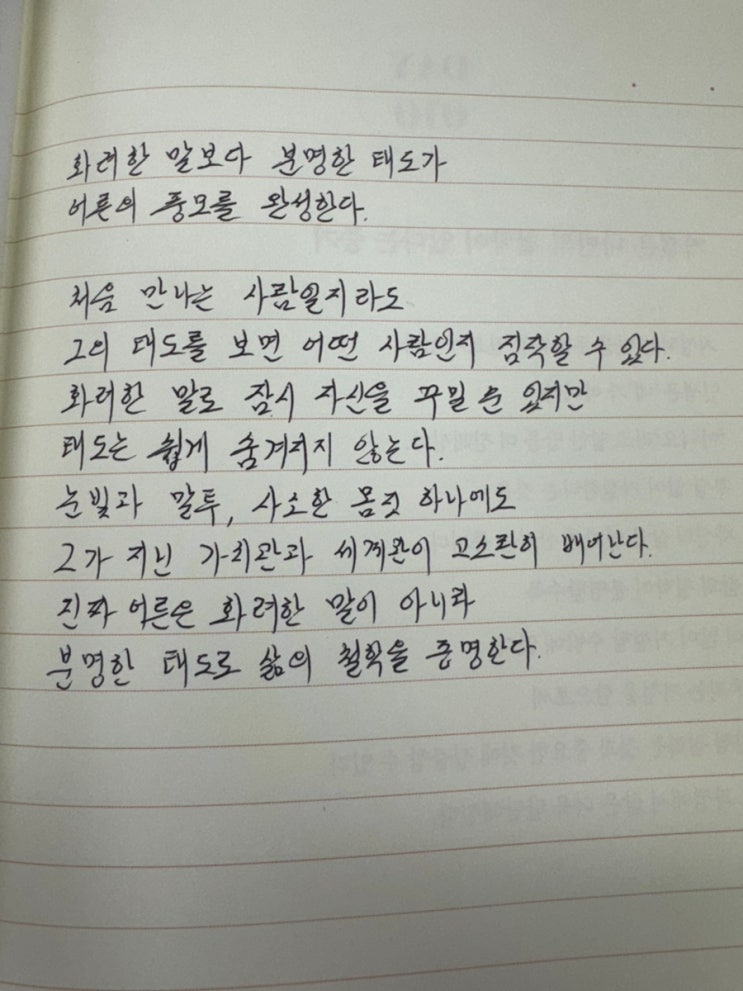 화려한 말보다 분명한 태도가
어른의 풍모를 완성한다.
처음 만나는 사람일지라도
그의 태도를 보면 어떤 사람인지 짐작할 수 있다.
화려한 말로 잠시 자신을 꾸밀 순 있지만
태도는 쉽게 숨겨지지 않는다.
눈빛과 말투, 사소한 몸짓 하나에도
그가 지닌 가치관과 세계관이 고스란히 배어난다.
진짜 어른은 화려한 말이 아니라
분명한 태도로 삶의 철학을 증명한다.